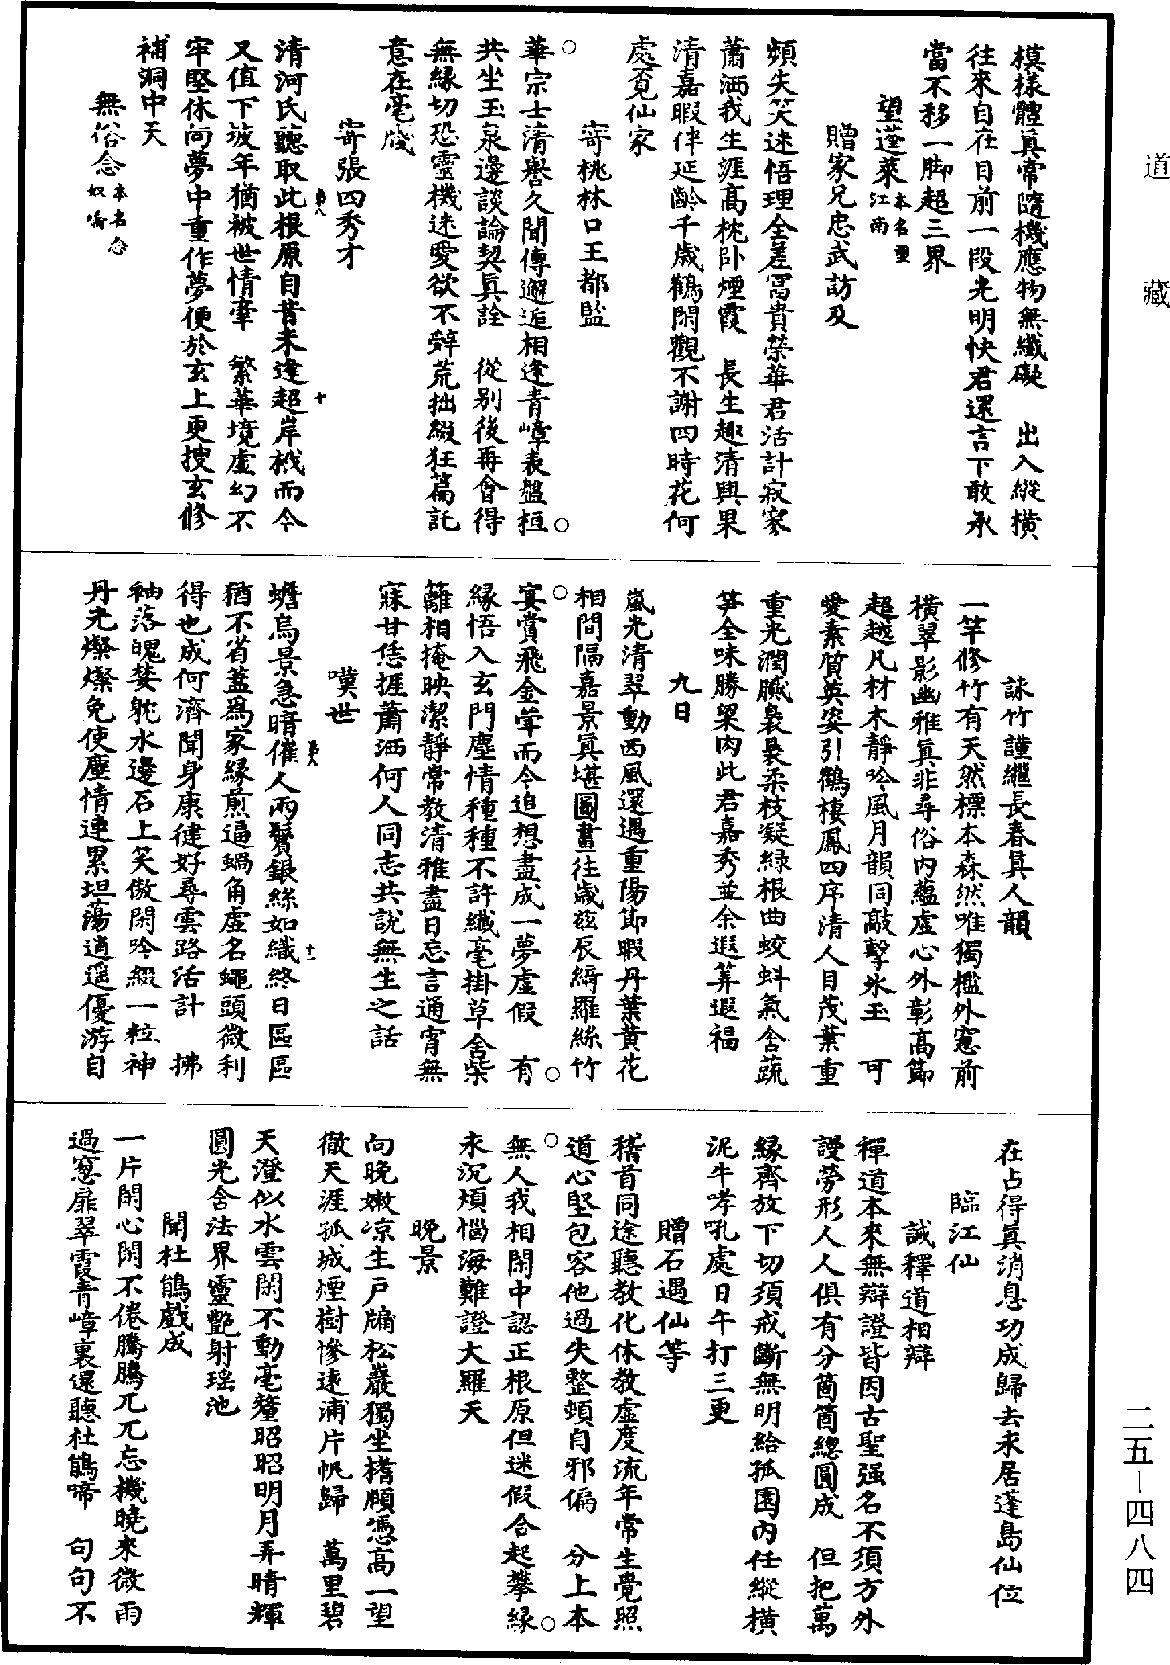 道藏
模樣體真常隨機應物無纖礙　出入縱橫
往來自在目前一段光明快君還言下敢承
當不移一脚超三界
望蓬萊本名望江南
贈家兄忠武訪及
頻失笑迷悟理全差冨貴榮華君活計寂寥
蕭洒我生涯高枕卧煙霞　長生趣清興果
清嘉暇伴延齡千歲鶴閑觀不謝四時花何
處覓仙家
寄桃林口王都監
華宗士清譽久聞傳邂逅相逢青嶂表盤桓
共坐玉泉邊談論契真詮　從别後再會得
無緣切恐靈機迷愛欲不辤荒拙綴狂篇託
意在毫牋
寄張四秀才
清河氏聽取此根原自昔未逢超岸栰而今
又值下坡年猶被世情牽　繁華境虛幻不
牢堅休向夢中重作夢便於玄上更搜玄修
補洞中天
無俗念本名念奴嬌
詠竹謹繼長春真人韻
一竿修竹有天然標本森然唯獨檻外窻前
橫翠影幽雅真非尋俗内藴虛心外彰高節
超越凡材木靜吟風月韻同敲擊氷玉　可
愛素質英姿引鶴棲鳳四序清人目茂葉重
重光潤膩裊裊柔枝凝緑根曲蛟蚪氣含蔬
笋全味勝粱肉此君嘉秀並余遐筭遐福
九日
嵐光清翠動西風還遇重陽節暇丹葉黄花
相間隔嘉景真堪圖畫往歲兹辰綺羅絲竹
宴賞飛金斝而今追想盡成一夢虛假　有
緣悟入玄門塵情種種不許纖毫掛草舍柴
籬相掩映潔靜常教清雅盡日忘言通宵無
寐甘恁捱蕭洒何人同志共說無生之話
嘆世
蟾烏景急暗催人兩鬢銀絲如織終日區區
猶不省蓋爲家緣煎逼蝸角虛名蠅頭微利
得也成何濟聞身康健好尋雲路活計　拂
袖落魄婪躭水邊石上笑傲閑吟綴一粒神
丹光燦燦免使塵情連累坦蕩逍遥優游自
在占得真消息功成歸去永居蓬島仙位
臨江仙
誡釋道相辯
禪道本來無辯證皆因古聖强名不須方外
謾勞形人人俱有分箇箇緫圓成　但把萬
緣齊放下切須戒斷無明給孤園内任縱横
泥牛哮吼處日午打三更
贈石遇仙等
稽首同途聽教化休教虛度流年常生覺照
道心堅包容他過失整頓自邪偏　分上本
無人我相閑中認正根原但迷假合起攀緣
永沉煩惱海難證大羅天
晚景
向晚嫩凉生戸牖松巖獨坐榰頤憑高一望
徹天涯孤城煙樹慘遠浦片帆歸　萬里碧
天澄似水雲閑不動毫釐昭昭明月弄晴輝
圓光含法界靈艷射瑶池
聞杜鵑戲成
一片閑心閑不倦騰騰兀兀忘機曉來微雨
過窻扉翠霞青嶂裏還聽杜鵑啼　句句不
二五－四八四